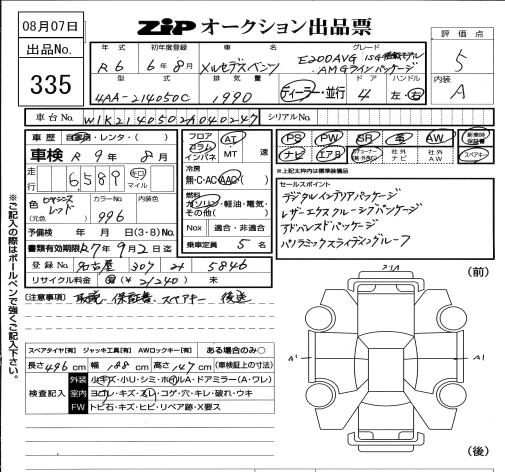 08月07日
ZiP オークション出品票
出品No.
335
評価点
5
内装
A
年式 初年度登録 車名 グレード
R6 6年8月 メルセデスベンツ E200AVG ISG搭載モデル
AMGラインパッケージ
型式 排気量 ドア ハンドル
4AA-214050C 1990 ディーラー・並行 4 左・右
車台No. W1K2140502A040247 シリアルNo.
車歴 自家用・レンタ・( )
車検 R9年8月
走行 6,589 キロ マイル
色 (元色) レッド カラーNo. 996 内装色
予備検 年 月 日(3・8)No.
書類有効期限 R7年9月2日迄
登録No. 名古屋 307 ス 5846
リサイクル料金 有(¥21240)未
フロア コラム インパネ AT・MT 速
冷房 無・C・AC・AAC・( )
燃料 ガソリン・軽油・電気・その他( )
Nox 適合・非適合
乗車定員 5名
PS PW SR 革 AW 新車時保証書
ナビ エアB 社外ナビ 社外AW スペアキー
*上記太枠内は標準装備品
セールスポイント
デジタルインテリアパッケージ
レザーエクスクルーシブパッケージ
アドバンスドパッケージ
パノラミックスライディングルーフ
(注意事項) 取説、保証書、スペアキー 後送
スペアタイヤ[有] ジャッキ工具[有] AWロックキー[有] ある場合のみ○
長さ496cm 幅188cm 高さ147cm (車検証上の寸法)
検査記入
外装 小キズ・小U・シミ・ホイルA・ドアミラー(A・ワレ)
室内 ヨゴレ・キズ・スレ・コゲ・穴・キレ・破れ・ウキ
FW トビ石・キズ・ヒビ・リペア跡・X要ス
※ご記入の際はボールペンで強くご記入下さい。
(前)
A1 A1
(後)